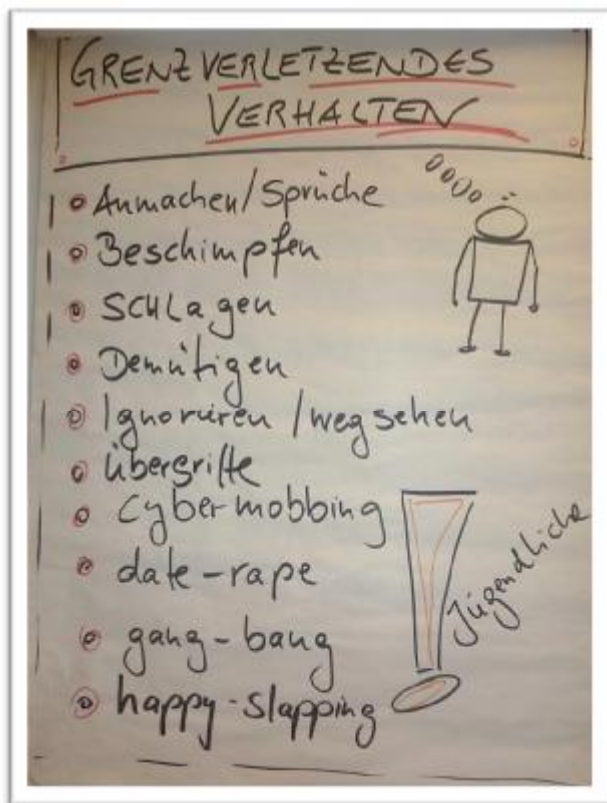 GRENZVERLETZENDES
VERHALTEN
Anmachen/Sprüche
Beschimpfen
SCHLagen
Demütigen
Ignorieren /wegsehen
Übergriffe
Cybermobbing
date-rape
gang-bang
happy-slapping
Jugendliche